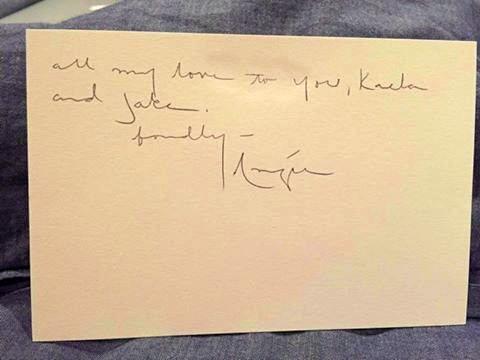 all my love to you, Kaela
and Jake.
fondly –
Angie